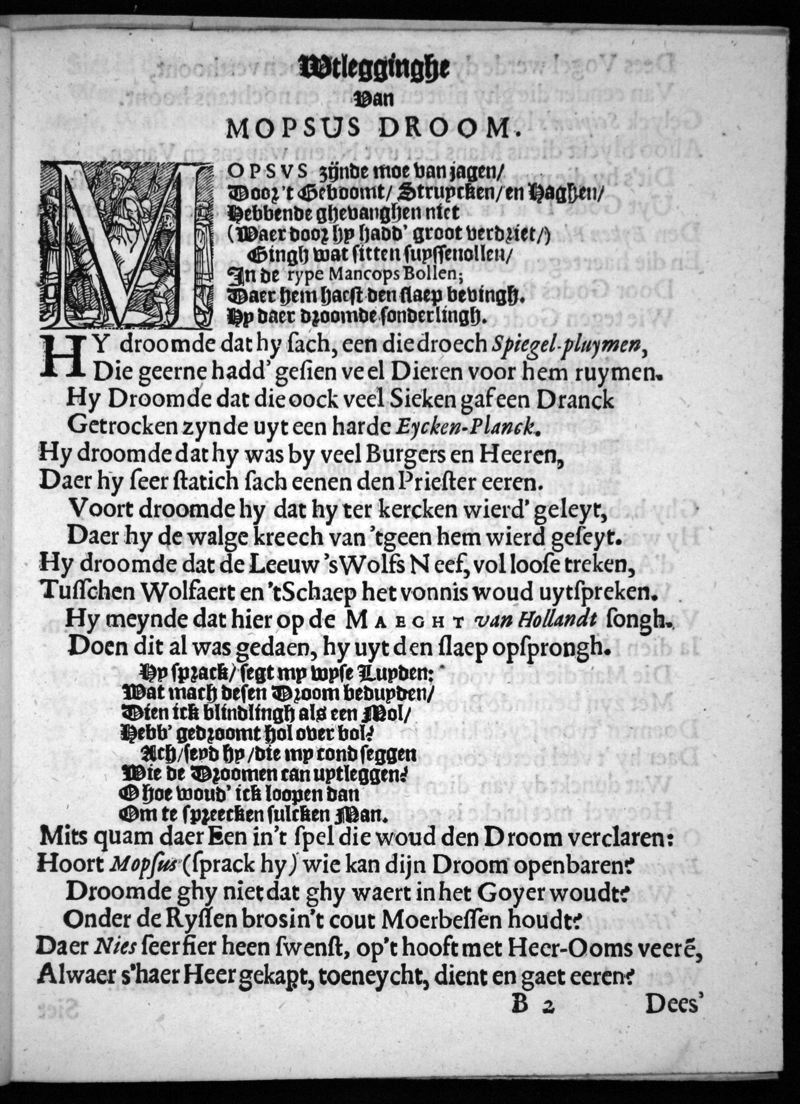 Wtlegginghe
Van
MOPSUS DROOM.
MOPSVS zijnde moe van jagen/
Door 't Geboomt/ Struycken/ en Haghen/
Hebbende ghevanghen niet
(Waer door hy hadd' groot verdriet/)
Gingh wat sitten suyssenollen/
In de rype Mancops Bollen;
Daer hem haest den slaep bevingh.
Hy daer droomde sonderlingh.
HY droomde dat hy sach, een die droech Spiegel-pluymen,
Die geerne hadd' gesien veel Dieren voor hem ruymen.
Hy Droomde dat die oock veel Sieken gaf een Dranck
Getrocken zynde uyt een harde Eycken-Planck.
Hy droomde dat hy was by veel Burgers en Heeren,
Daer hy seer statich sach eenen den Priester eeren.
Voort droomde hy dat hy ter kercken wierd' geleyt,
Daer hy de walge kreech van 'tgeen hem wierd geseyt.
Hy droomde dat de Leeuw 's Wolfs Neef, vol loose treken,
Tusschen Wolfaert en 'tSchaep het vonnis woud uytspreken.
Hy meynde dat hier op de MAEGHT van Hollandt songh.
Doen dit al was gedaen, hy uyt den slaep opsprongh.
Hy sprack/ segt my wyse Luyden:
Wat mach desen Droom beduyden/
Dien ick blindlingh als een Mol/
Hebb' gedroomt hol over bol?
Ach/ seyd hy/ die my cond seggen
Wie de Droomen can uytleggen?
O hoe woud' ick loopen dan
Om te spreecken sulcken Man.
Mits quam daer Een in't spel die woud den Droom verclaren:
Hoort Mopsus (sprack hy) wie kan dijn Droom openbaren?
Droomde ghy niet dat ghy waert in het Goyer woudt?
Onder de Ryssen bros in't cout Moerbessen houdt?
Daer Nies seer fier heen swenst, op't hooft met Heer-Ooms veerē,
Alwaer s'haer Heer gekapt, toeneycht, dient en gaet eeren?
B 2 Dees'